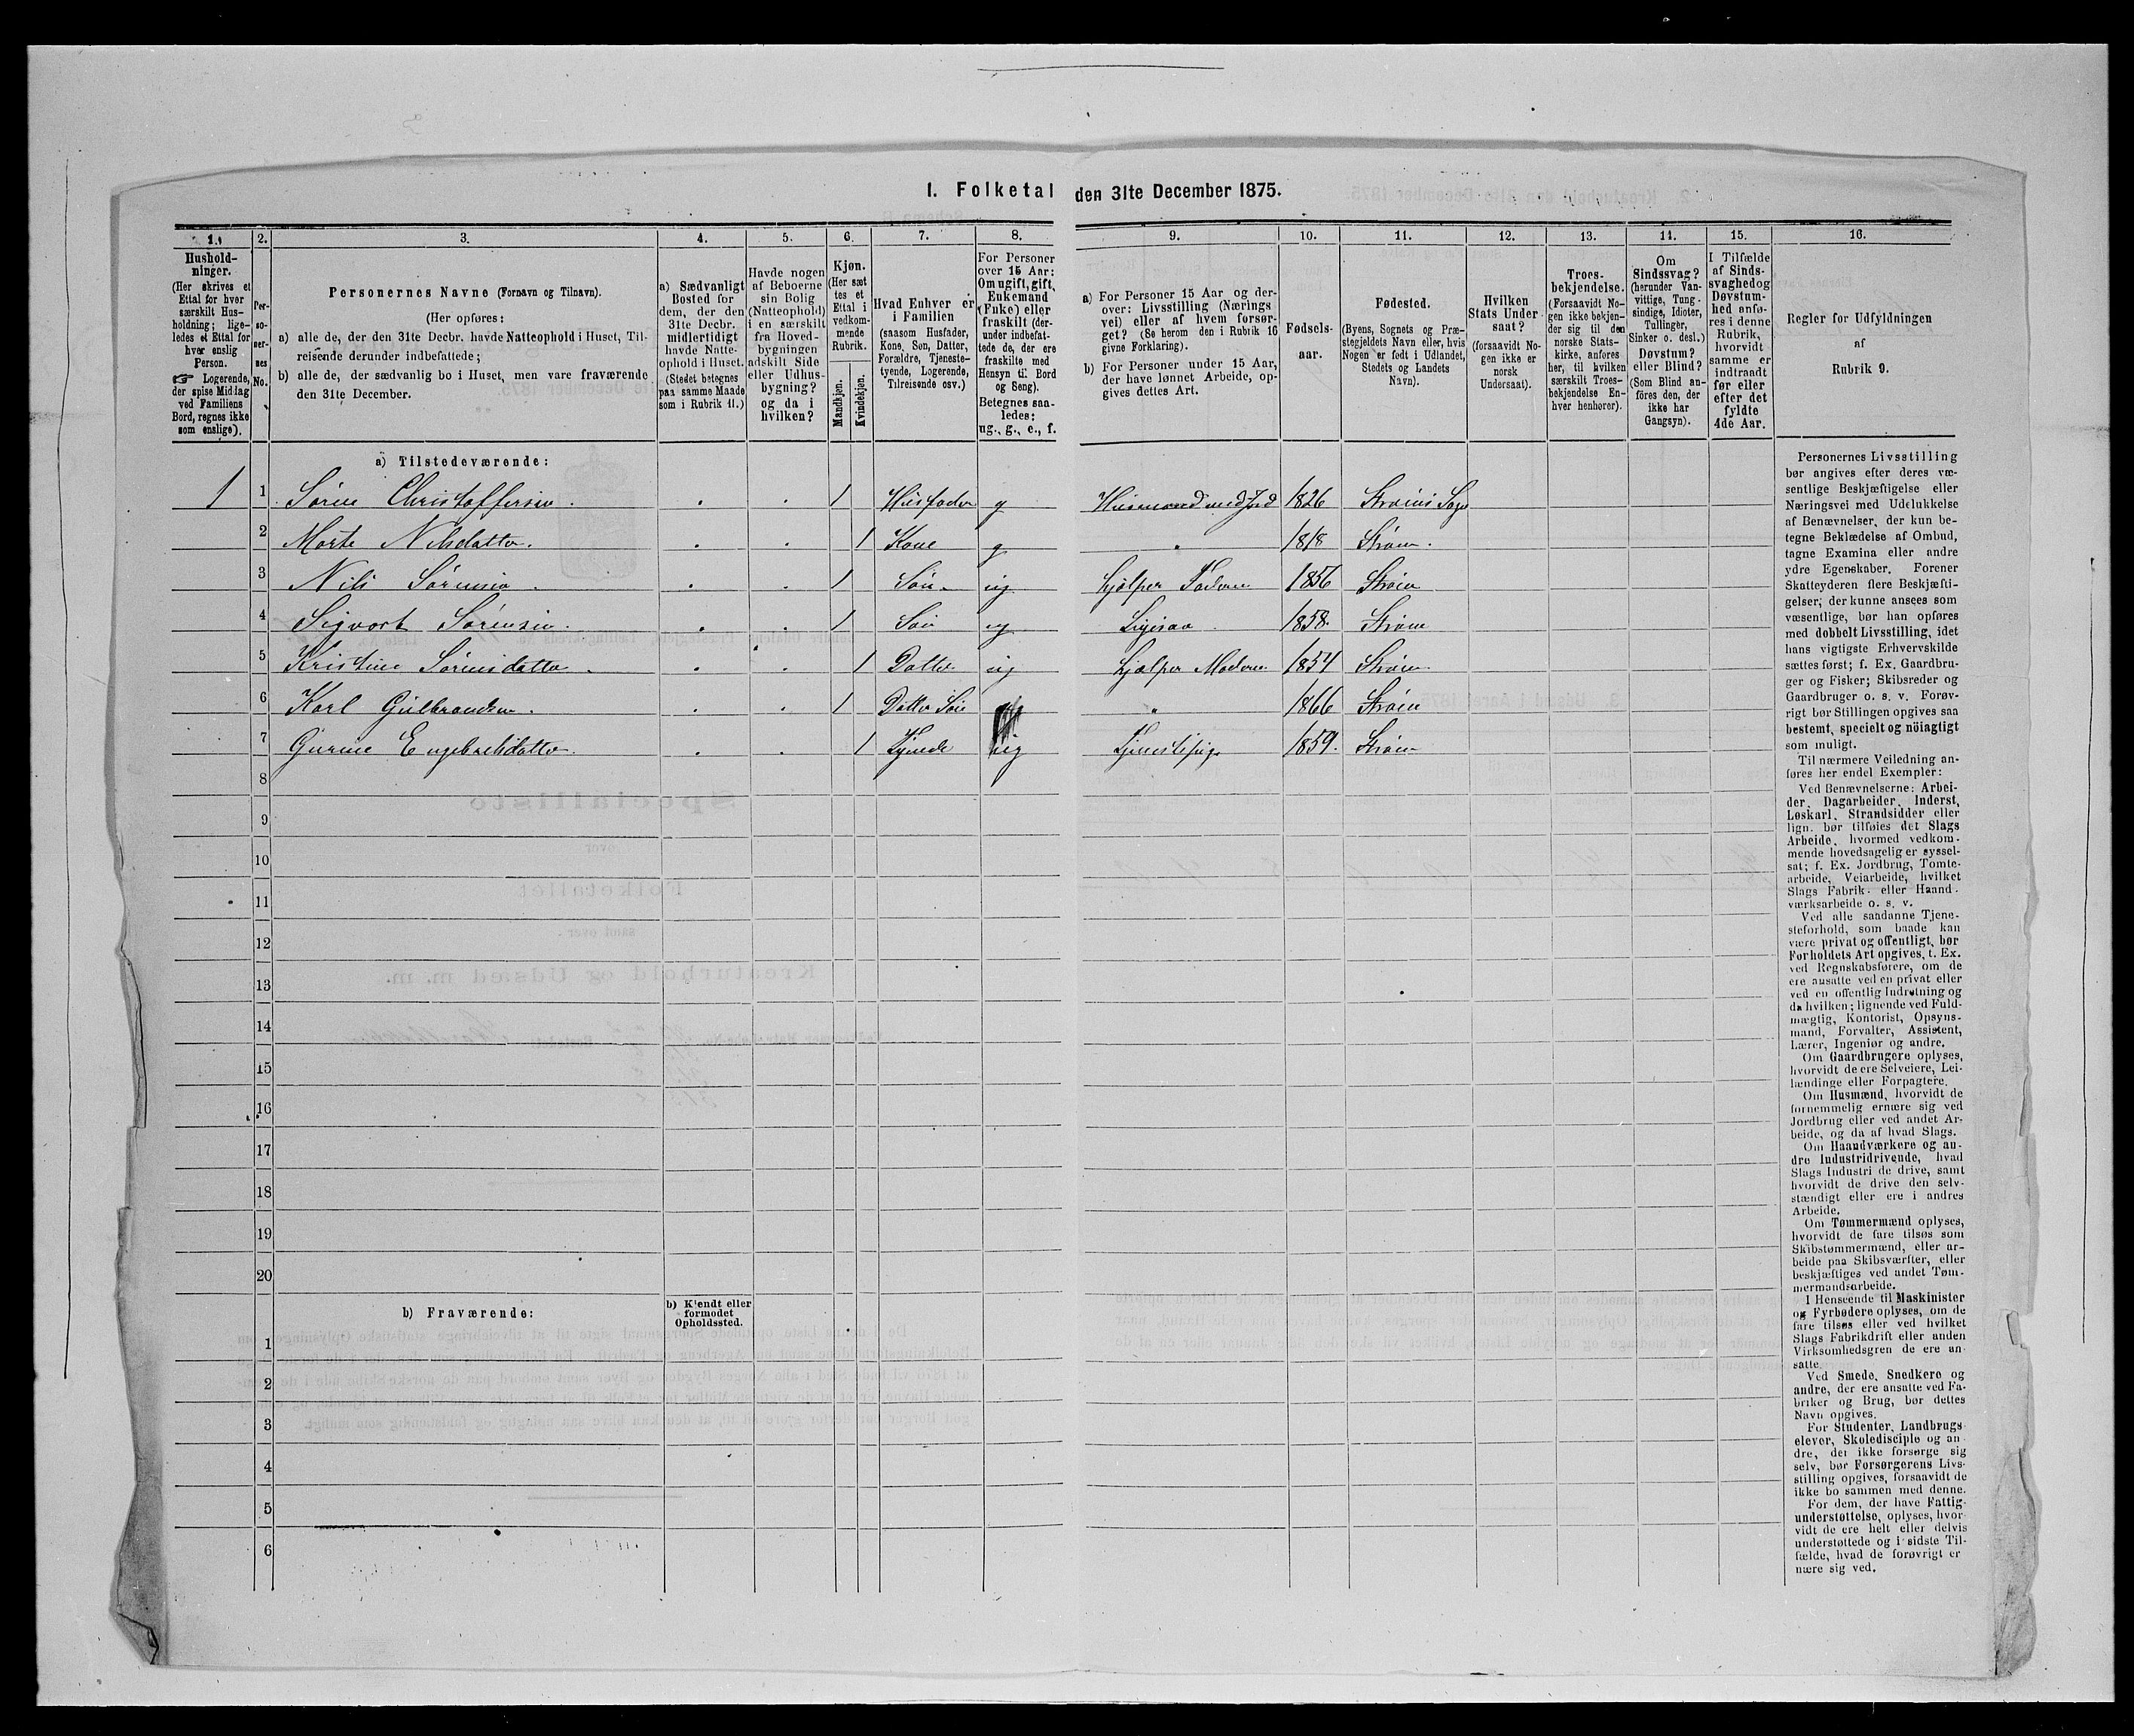 1. Folketal den 31te December 1875.
1.
Hushold-
ninger.
(Her skrives et
Ettal for hver
særskilt Hus-
holdning; lige-
ledes et Ettal for
hver enslig
Person.
☞ Logerende,
der spise Middag
ved Familiens
Bord, regnes ikke
som enslige).
2.
Per-
so-
ner-
nes
No.
3.
Personernes Navne (Fornavn og Tilnavn).
(Her opføres:
a) alle de, der den 31te Decbr. havde Natteophold i Huset, Til-
reisende derunder indbefattede;
b) alle de, der sædvanlig bo i Huset, men vare fraværende
den 31te December.
4.
a) Sædvanligt
Bosted for
dem, der den
31te Decbr.
midlertidigt
havde Natte-
ophold i Huset.
(Stedet betegnes
paa samme Maade
som i Rubrik 11.)
5.
Havde nogen
af Beboerne
sin Bolig
(Natteophold)
i en særskilt
fra Hoved-
bygningen
adskilt Side
eller Udhus-
bygning?
og da i
hvilken?
6.
Kjøn.
(Her sæt
tes et
Ettal i
vedkom-
mende
Rubrik.
Mandkjøn.
Kvindekjøn.
7.
Hvad Enhver er
i Familien
(saasom Husfader,
Kone, Søn, Datter,
Forældre, Tjeneste-
tyende, Logerende,
Tilreisende osv.)
8.
For Personer
over 15 Aar:
Om ugift, gift,
Enkemand
(Enke) eller
fraskilt (der-
under indbefat-
tede de, der ere
fraskilte med
Hensyn til Bord
og Seng).
Betegnes saa-
ledes:
ug., g., e., f.
9.
a) For Personer 15 Aar og der-
over: Livsstilling (Nærings
vei) eller af hvem forsør-
get? (Se herom den i Rubrik 16
givne Forklaring).
b) For Personer under 15 Aar,
der have lønnet Arbeide, op-
gives dettes Art.
10.
Fødsels-
aar.
11.
Fødested.
(Byens, Sognets og Præ-
stegjeldets Navn eller, hvis
Nogen er født i Udlandet,
Stedets og Landets
Navn).
12.
Hvilken
Stats Under
saat?
(forsaavidt No-
gen ikke er
norsk
Undersaat).
13.
Troes-
bekjendelse.
(Forsaavidt No-
gen ikke bekjen-
der sig til den
norske Stats-
kirke, anføres
her, til hvilken
særskilt Troes-
bekjendelse En-
hver henhører).
14.
Om
Sindssvag?
(herunder Van-
vittige, Tung-
sindige, Idioter,
Tullinger,
Sinker o. desl.)
Døvstum?
eller Blind?
(Som Blind an-
føres den, der
ikke har
Gangsyn).
15.
I Tilfælde
af Sinds-
svaghed og
Døvstum-
hed anfø-
res i denne
Rubrik,
hvorvidt
samme er
indtraadt
før eller
efter det
fyldte
4de Aar.
16.
Regler for Udfyldningen
af
Rubrik 9.
a) Tilstedeværende:
1 1 Søren Christoffersen 1 Husfader g Husmand med Jord 1826 Strøms Sogn
2 Marte Nilsdatter. 1 Kone g " 1818 Strøm.
3 Nils Sørensen 1 Søn ug Hjelper Faderen 1856 Strøm
4 Sigvart Sørensen. 1 Søn ug Ligesaa 1858. Strøm
5 Kristine Sørensdatter 1 Datter ug Hjelper Moderen 1854 Strøm
6 Karl Gulbrandsen. 1 Datter Søn " 1866 Strøm
7 Gurine Engebretsdatter 1 Tjende ug Tjenestepige 1859. Strøm
8
9
10
11
12
13
14
15
16
17
18
19
20
b) Fraværende:
b) Kjendt eller
formodet
Opholdssted.
1
2
3
4
5
6
Personernes Livsstilling
bør angives efter deres væ-
sentlige Beskjæftigelse eller
Næringsvei med Udelukkelse
af Benævnelser, der kun be-
tegne Beklædelse af Ombud,
tagne Examina eller andre
ydre Egenskaber. Forener
Skatteyderen flere Beskjæfti-
gelser, der kunne ansees som
væsentlige, bør han opføres
med dobbelt Livsstilling, idet
hans vigtigste Erhvervskilde
sættes først; f. Ex. Gaardbru-
ger og Fisker; Skibsreder og
Gaardbruger o. s. v. Forøv-
rigt bør Stillingen opgives saa
bestemt, specielt og nöiagtigt
som muligt.
Til nærmere Veiledning an-
føres her endel Exempler:
Ved Benævnelserne: Arbei-
der, Dagarbeider, Inderst,
Løskarl, Strandsidder eller
lign. bør tilføies det Slags
Arbeide, hvormed vedkom-
mende hovedsagelig er syssel-
sat; f. Ex. Jordbrug, Tomte-
arbeide, Veiarbeide, hvilket
Slags Fabrik- eller Haand-
værksarbeide o. s. v.
Ved alle saadanne Tjene-
steforhold, som baade kan
være privat og offentligt, bør
Forholdets Art opgives, t. Ex.
ved Regnskabsførere, om de
ere ansatte ved en privat eller
ved en offentlig Indretning og
da hvilken; lignende ved Fuld-
mægtig, Kontorist, Opsyns-
mand, Forvalter, Assistent,
Lærer, Ingeniør og andre.
Om Gaardbrugere oplyses,
hvorvidt de ere Selveiere, Lei-
lændinge eller Forpagtere.
Om Husmænd, hvorvidt de
fornemmelig ernære sig ved
Jordbrug eller ved andet Ar-
beide, og da af hvad Slags.
Om Haandværkere og an-
dre Industridrivende, hvad
Slags Industri de drive, samt
hvorvidt de drive den selv-
stændigt eller ere i andres
Arbeide.
Om Tømmermænd oplyses,
hvorvidt de fare tilsøs som
Skibstømmermænd, eller ar-
beide paa Skibsværfter, eller
beskjæftiges ved andet Tøm-
mermandsarbeide.
I Henseende til Maskinister
og Fyrbødere oplyses, om de
fare tilsøs eller ved hvilket
Slags Fabrikdrift eller anden
Virksomhedsgren de ere an-
satte.
Ved Smede, Snedkere og
andre, der ere ansatte ved Fa-
briker og Brug, bør dettes
Navn opgives.
For Studenter, Landbrugs-
elever, Skoledisciple og an-
dre, der ikke forsørge sig
selv, bør Forsørgerens Livs-
stilling opgives, forsaavidt de
ikke bo sammen med denne.
For dem, der have Fattig-
understøttelse, oplyses, hvor-
vidt de ere helt eller delvis
understøttede og i sidste Til-
fælde, hvad de forøvrigt er
nære sig ved.